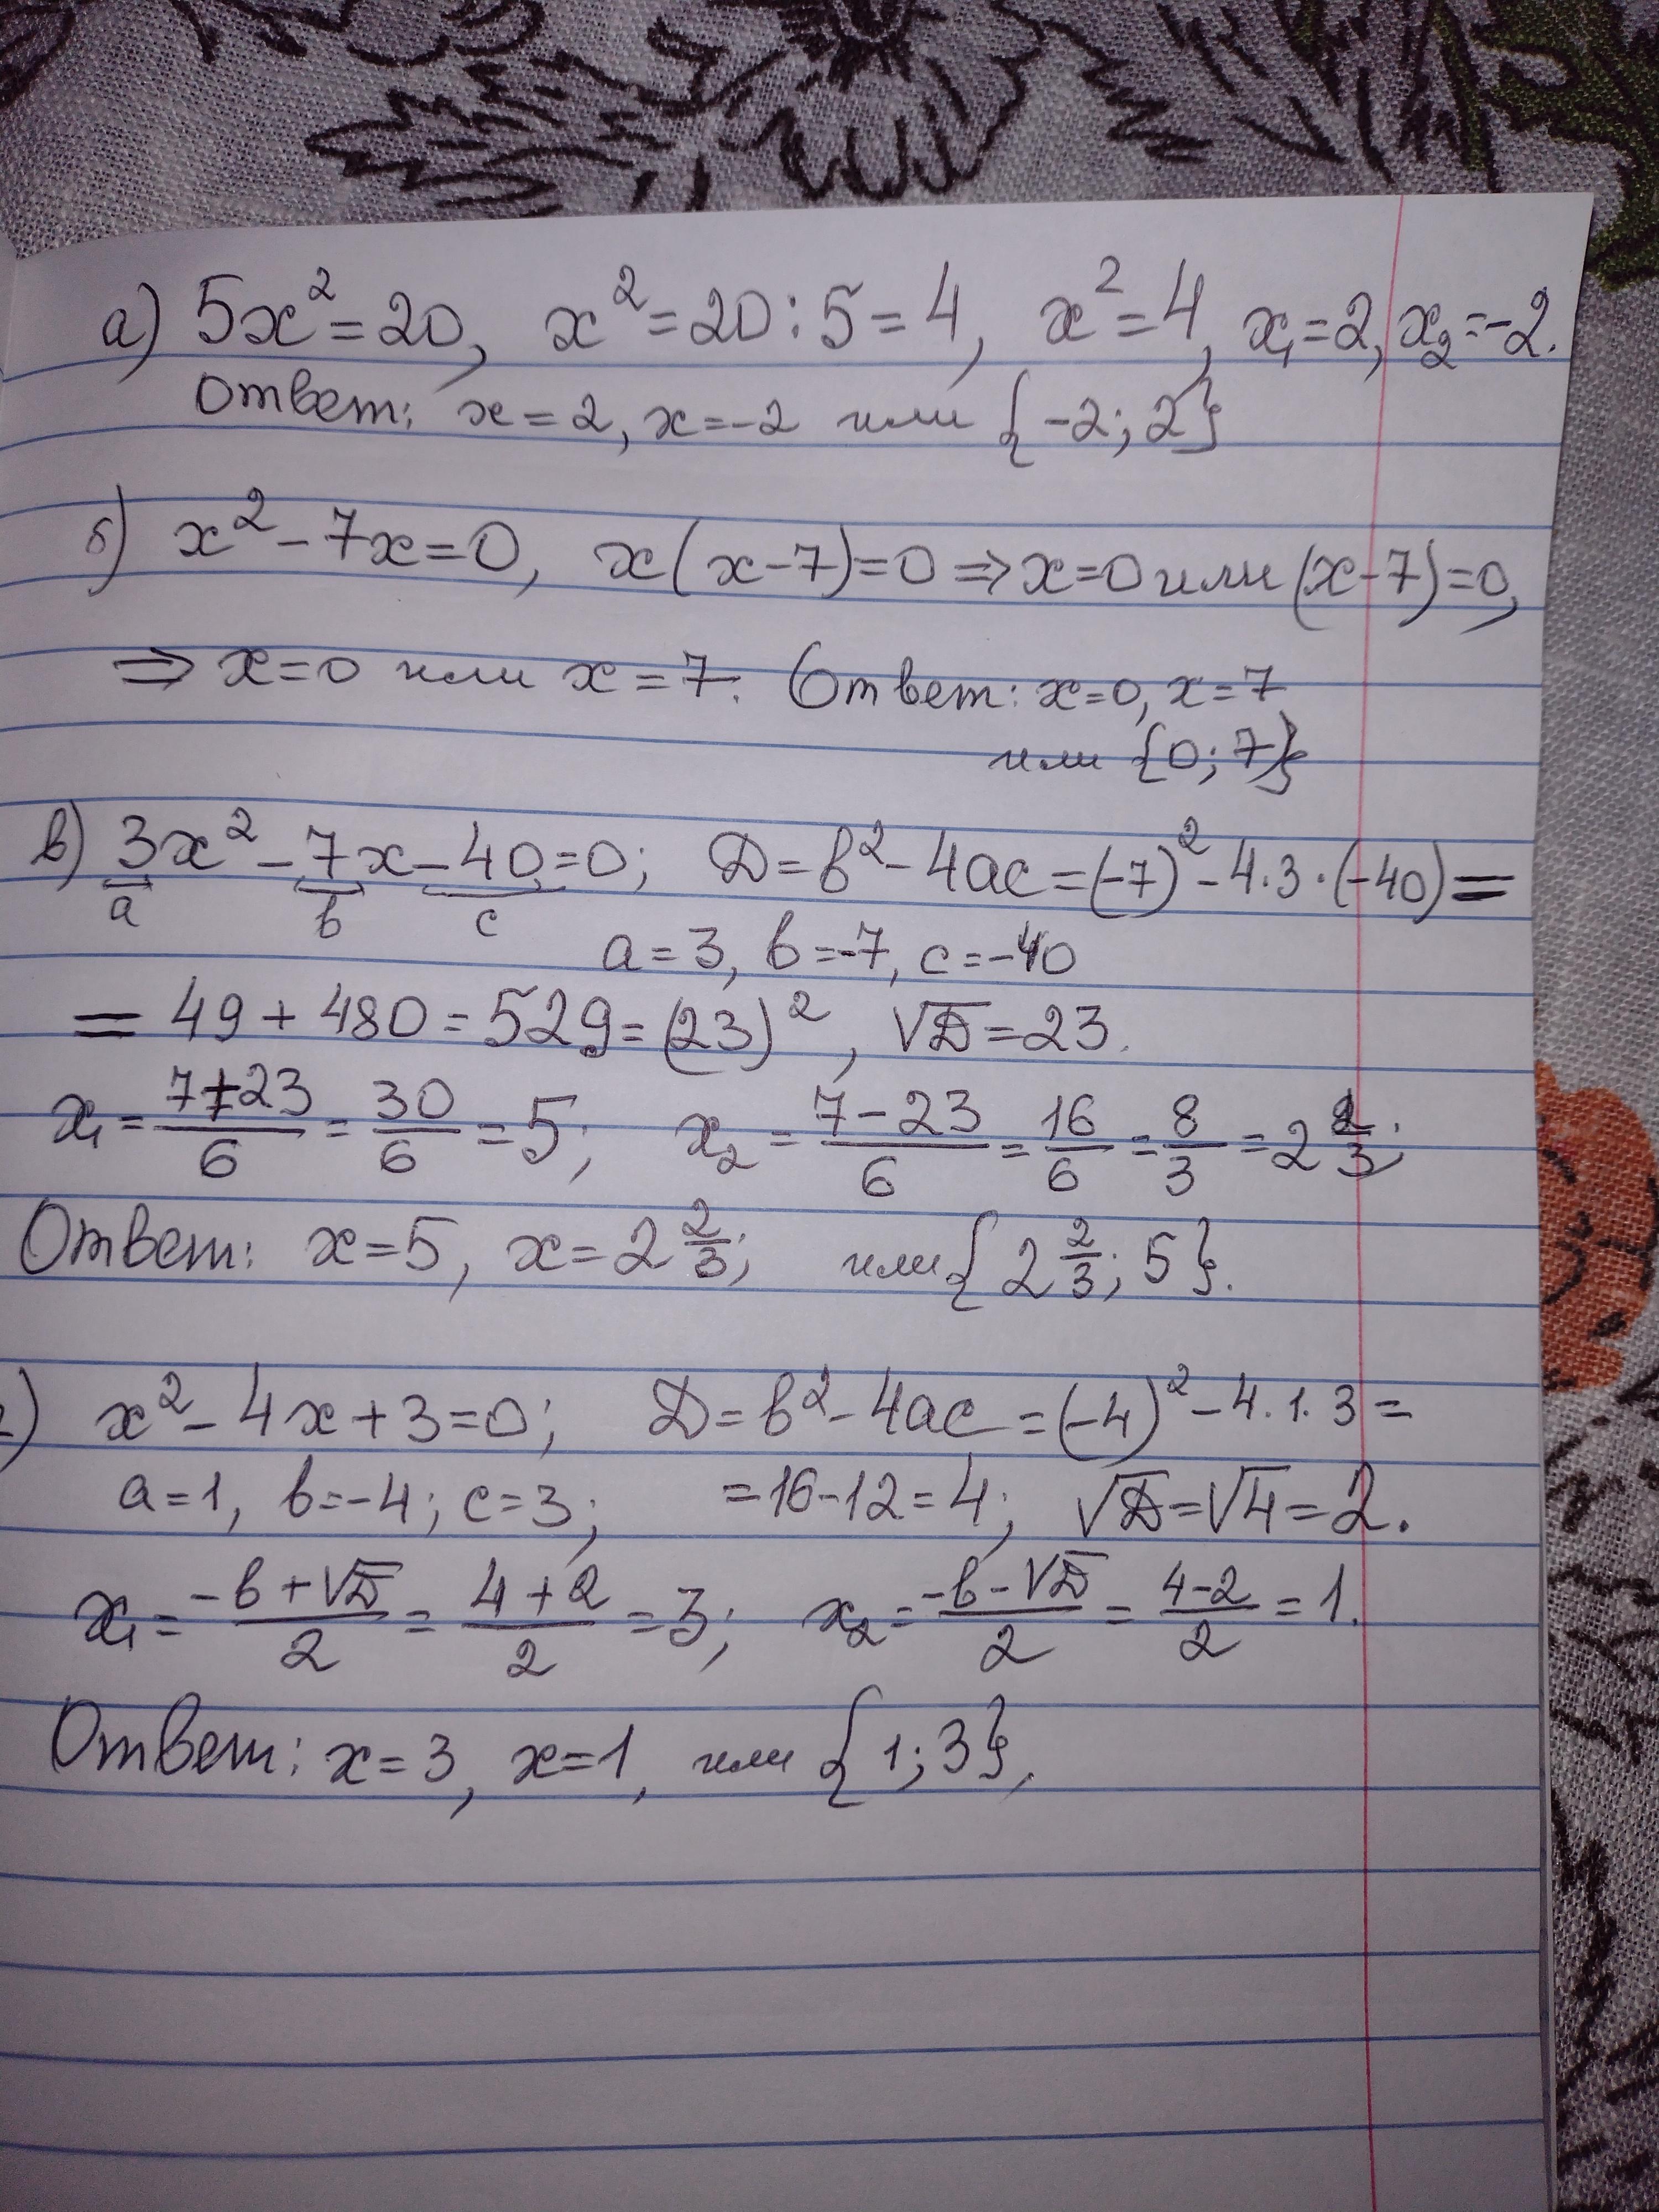 а) 5x² = 20, x² = 20 : 5 = 4, x² = 4, x₁ = 2, x₂ = -2.
Ответ: x = 2, x = -2 или {-2; 2}
б) x² - 7x = 0, x(x - 7) = 0 ⇒ x = 0 или (x - 7) = 0,
⇒ x = 0 или x = 7. Ответ: x = 0, x = 7
или {0; 7}
в) 3x² - 7x - 40 = 0; D = b² - 4ac = (-7)² - 4·3·(-40) =
a b c
a = 3, b = -7, c = -40
= 49 + 480 = 529 = (23)², √D = 23.
x₁ = (7+23)/6 = 30/6 = 5; x₂ = (7-23)/6 = 16/6 = 8/3 = 2 2/3;
Ответ: x = 5, x = 2 2/3; или {2 2/3; 5}.
) x² - 4x + 3 = 0; D = b² - 4ac = (-4)² - 4·1·3 =
a = 1, b = -4; c = 3; = 16 - 12 = 4; √D = √4 = 2.
x₁ = (-b+√D)/2 = (4+2)/2 = 3; x₂ = (-b-√D)/2 = (4-2)/2 = 1.
Ответ: x = 3, x = 1, или {1; 3},